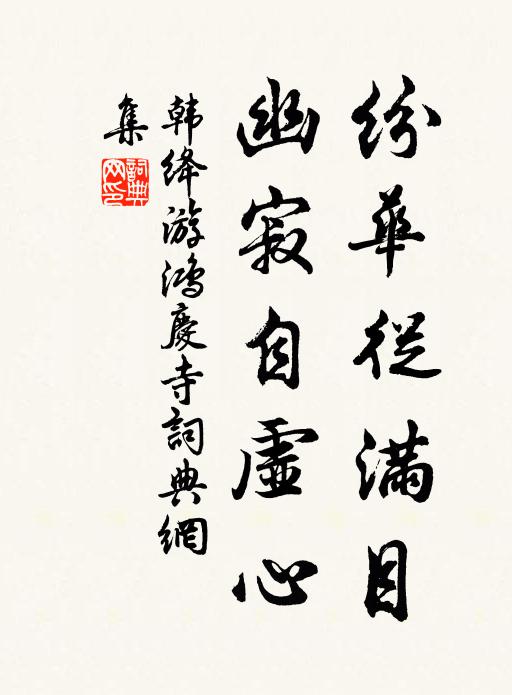 紛華從滿目
幽寂自虛心
韩绛游鴻慶寺詞典網
集
詞典網印